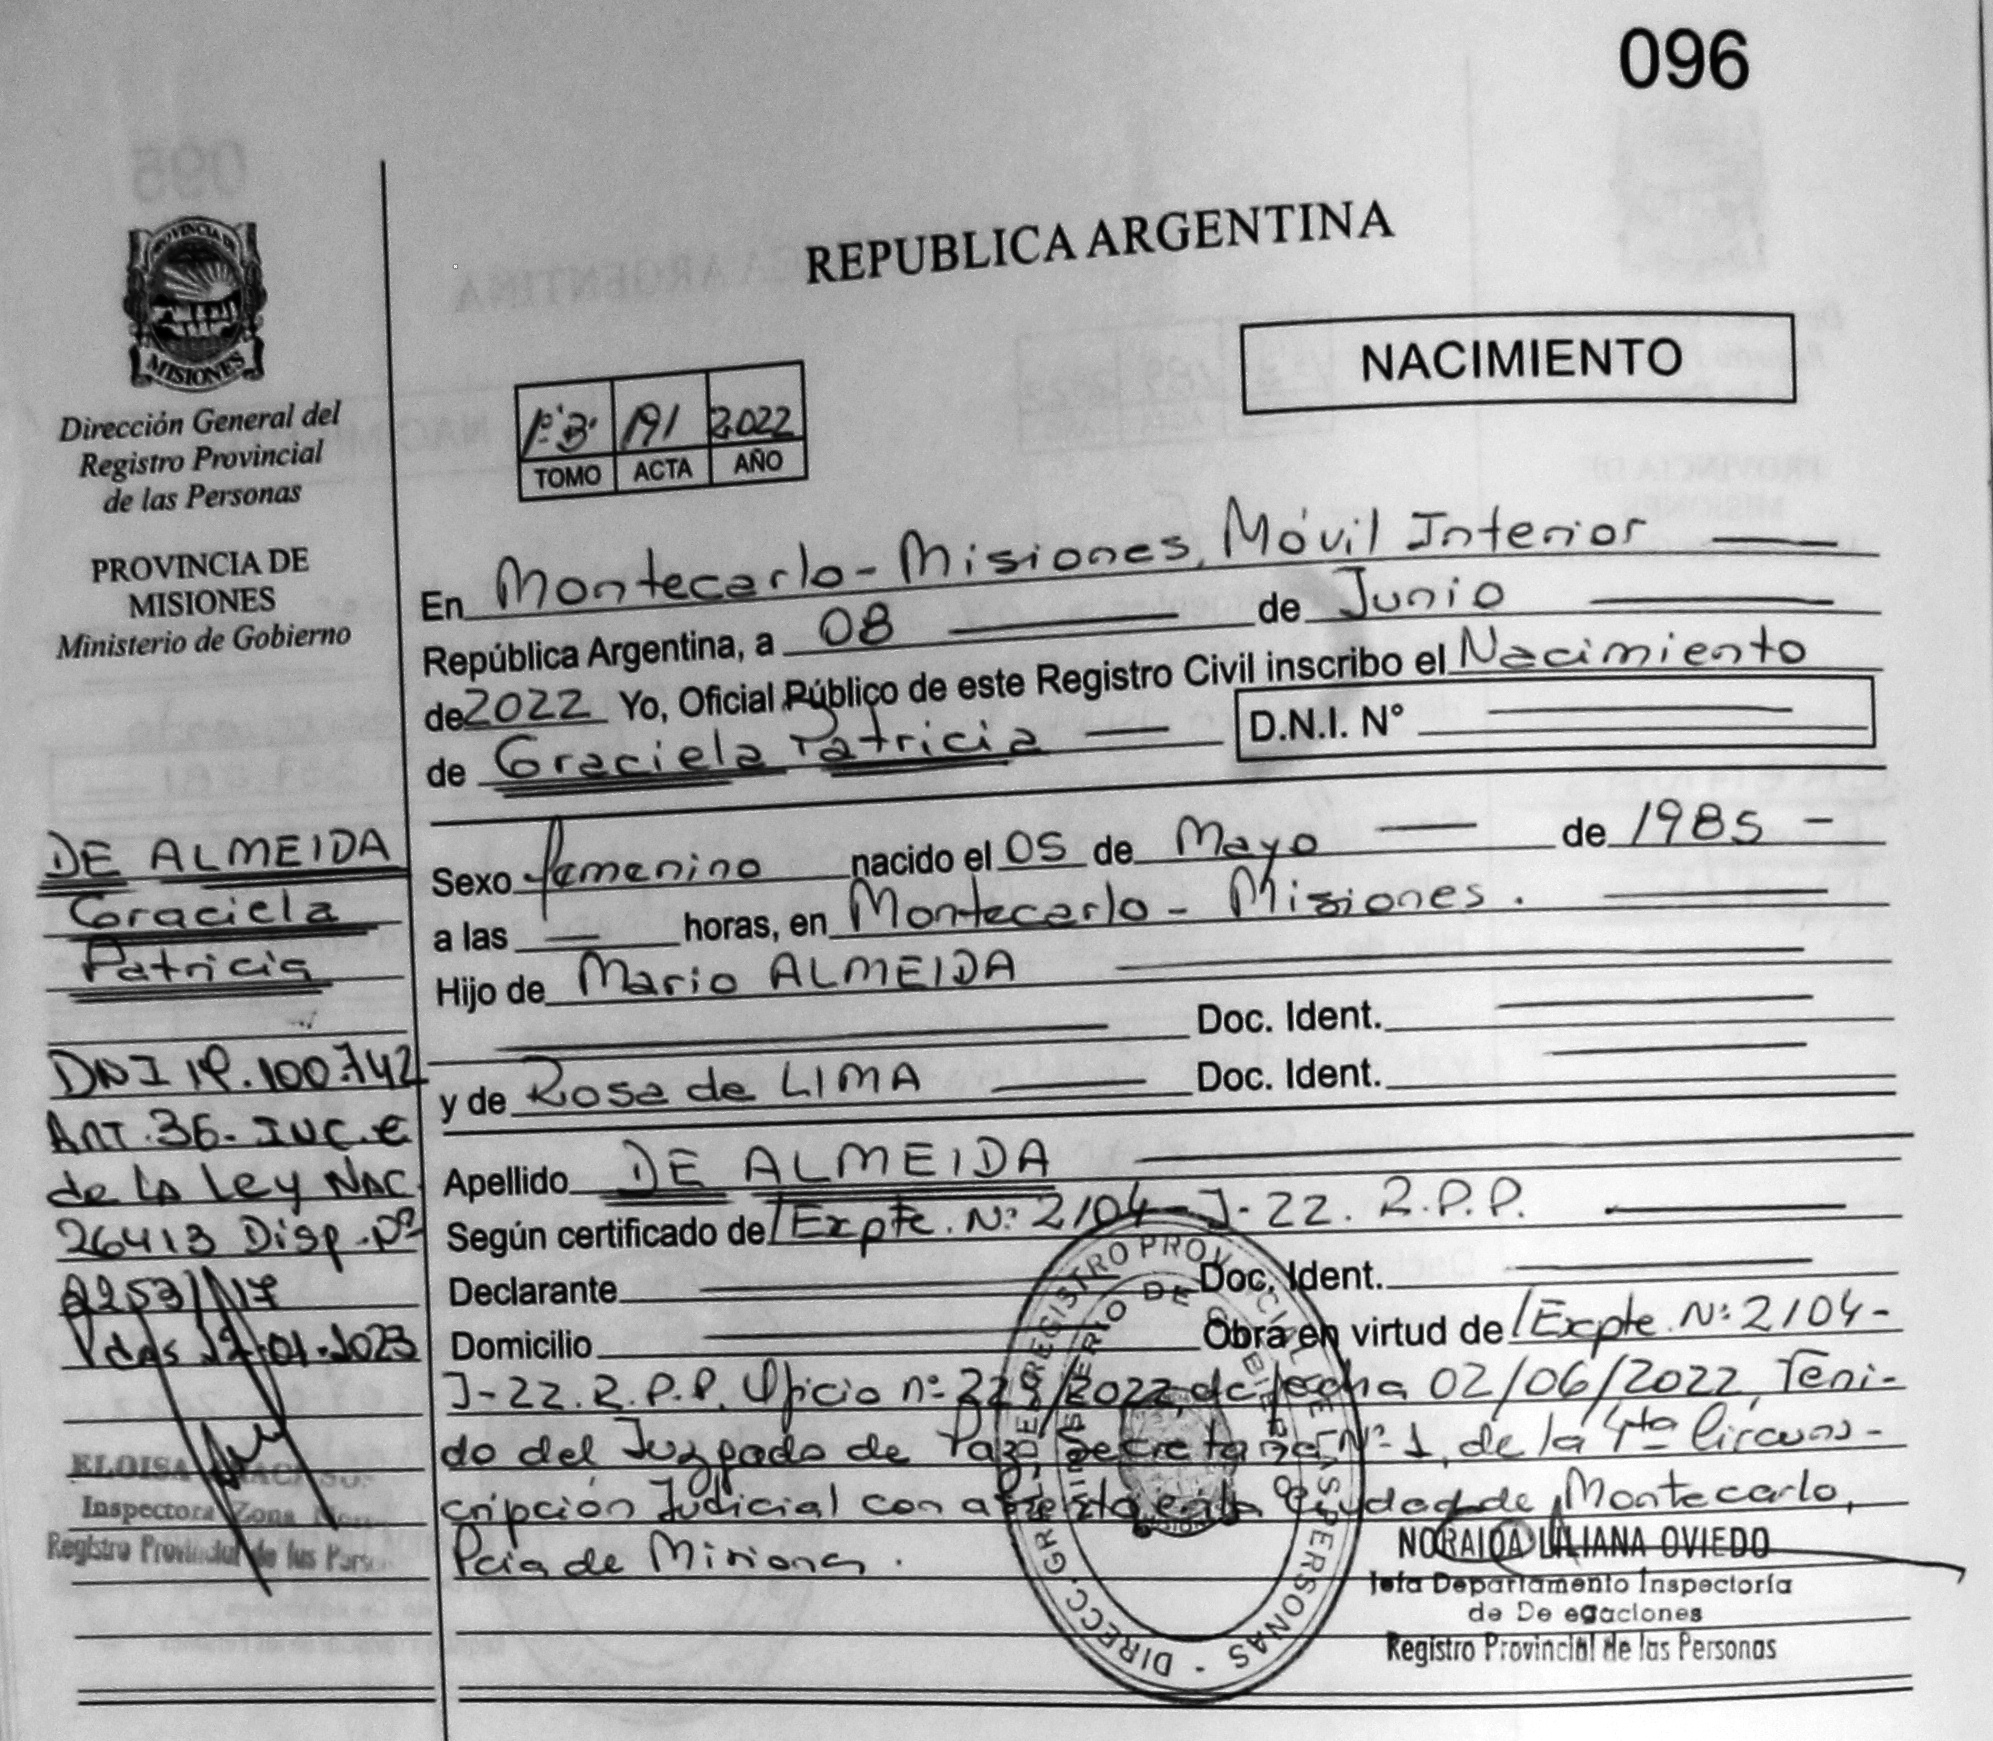 096
REPUBLICA ARGENTINA
NACIMIENTO
PROVINCIA DE
MISIONES
Dirección General del
Registro Provincial
de las Personas
PROVINCIA DE
MISIONES
Ministerio de Gobierno
1º "B" 191 2022
TOMO ACTA AÑO
En Montecarlo - Misiones, Móvil Interior
República Argentina, a 08 de Junio
de 2022 Yo, Oficial Público de este Registro Civil inscribo el Nacimiento
de Graciela Patricia D.N.I. N°
Sexo femenino nacido el 05 de Mayo de 1985
a las horas, en Montecarlo - Misiones.
Hijo de Mario ALMEIDA
Doc. Ident.
y de Rosa de LIMA Doc. Ident.
Apellido DE ALMEIDA
Según certificado de Expte. Nº 2104-J-22. R.P.P.
Declarante Doc. Ident.
Domicilio Obra en virtud de Expte. Nº 2104-
J-22. R.P.P. Oficio nº /2022, de fecha 02/06/2022, Teni-
do del Juzgado de Paz Secretaria Nº 1, de la 4ta Circuns-
cripción Judicial con asiento en la Ciudad de Montecarlo,
Pcia de Misiones.
DE ALMEIDA
Graciela
Patricia
DNI 19.100.742
Art. 36. INC. C
de la Ley NAC
26413 Disp. Nº
2253/17
Pdas 27.01.2023
ELOISA
Inspectora Zona
Registro Provincial de las Pers
DIRECC. GRAL. DE REGISTRO PROVINCIAL DE LAS PERSONAS
MINISTERIO DE GOBIERNO
NORAIDA LILIANA OVIEDO
Jefa Departamento Inspectoría
de De egaciones
Registro Provincial de las Personas